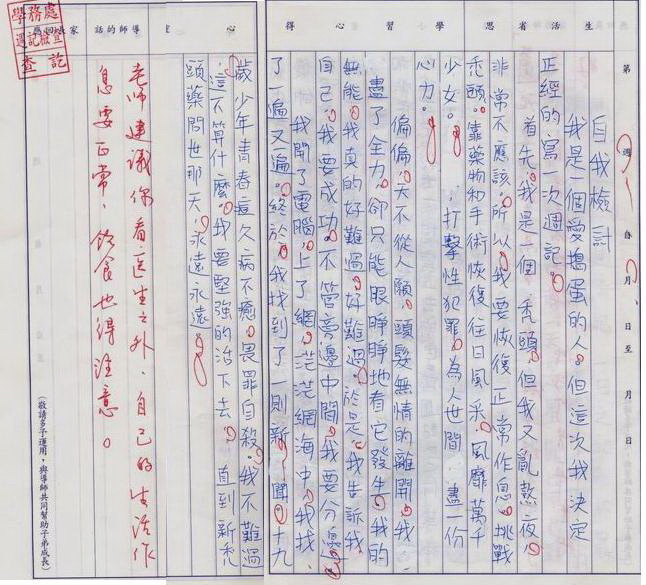 生活省思
學習心得
第 週
自 月 日至 月 日
自我檢討
我是一個愛搗蛋的人。但這次我決定
正經的寫一次週記。
首先,我是一個禿頭,但我又亂熬夜,
非常不應該,所以,我要恢復正常作息,挑戰
禿頭。靠藥物和手術恢復往日風采,風靡萬千
少女。打擊性犯罪,為人世間,盡一份
心力。
偏偏,天不從人願,頭髮無情的離開,我
盡了全力,卻只能眼睜睜地看它發生,我的
無能,我真的好難過,好難過。於是,我告訴我
自己,我要成功,不管旁邊中間,我要分
我開了電腦,上了網,茫茫網海中,我找
了一遍又一遍。終於,我找到了一則新聞,十九
歲少年青春痘久病不癒,畏罪自殺。我不難過
,這不算什麼,我要堅強的活下去,直到新禿
頭藥問世那天,永遠永遠。
導師的話
老師建議你看医生之外,自己的生活作
息要正常,飲食也得注意。
家長
學務處
週記檢查
查訖
(敬請多予運用,與導師共同幫助子弟成長)